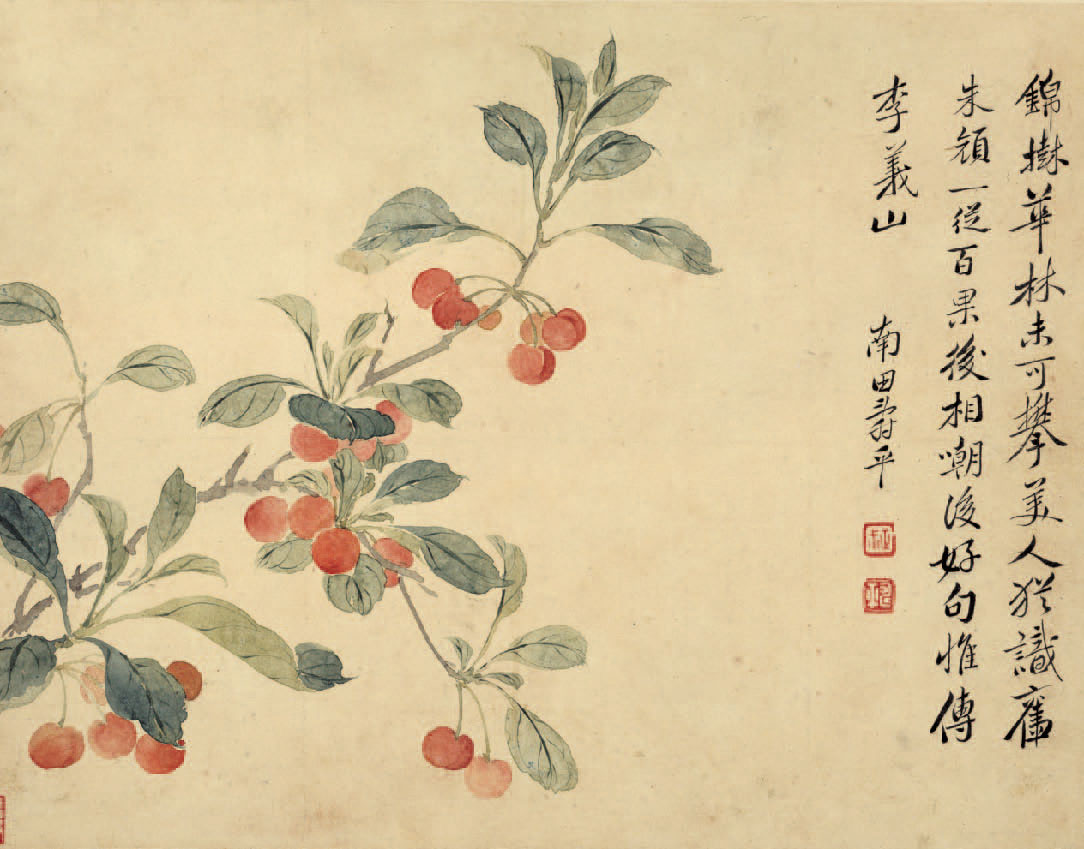 錦樹華林未可攀美人猶識舊
朱顏一從百果後相嘲後好句惟傳
李義山 南田壽平